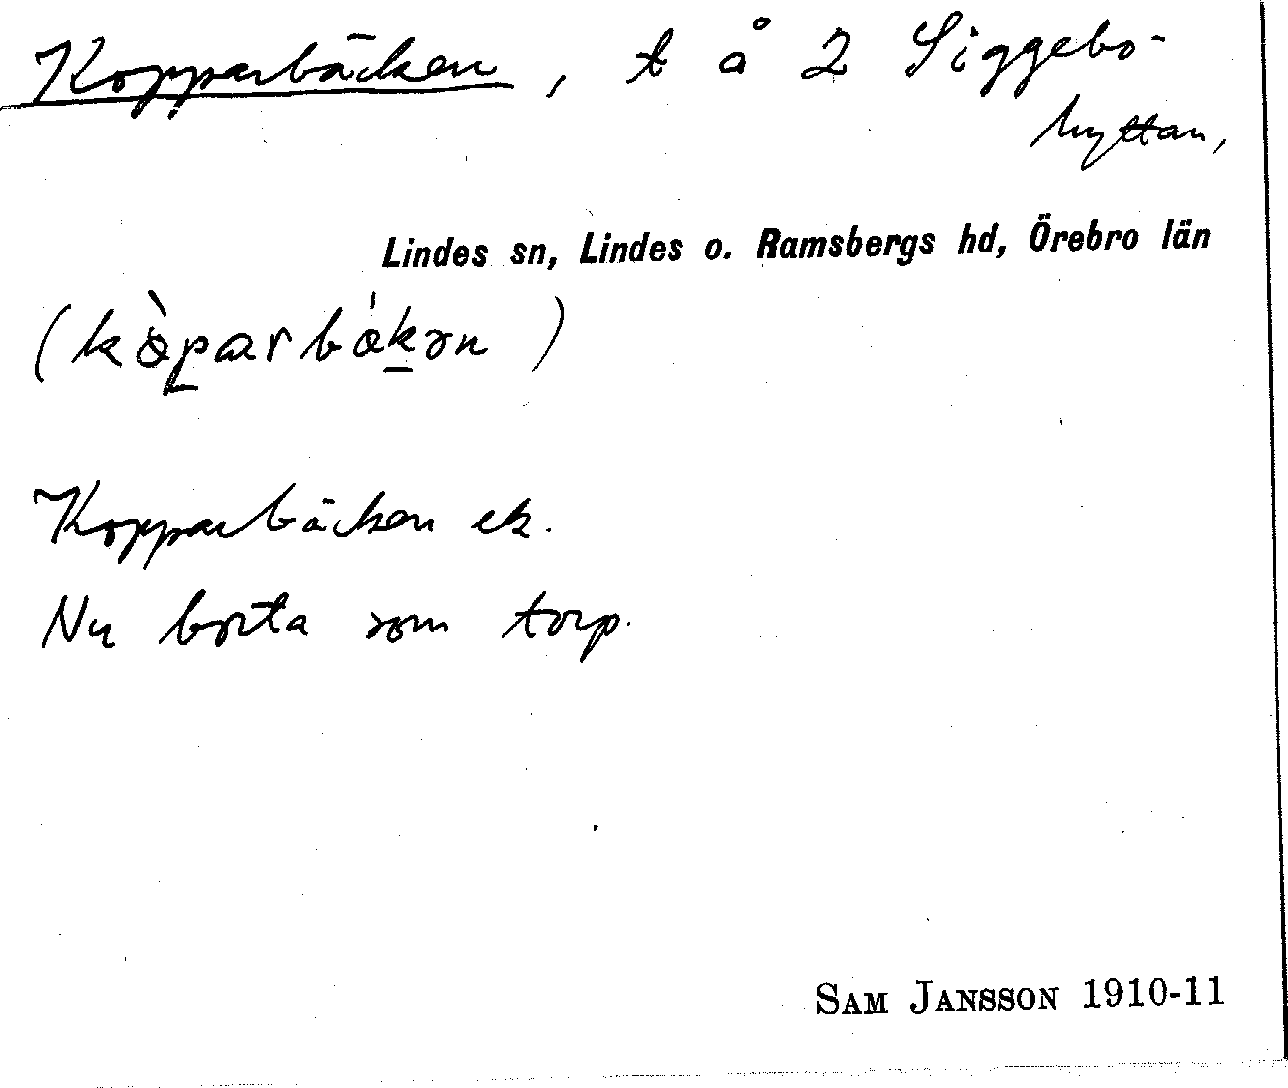 Kopparbäcken, t å 2 Siggebo-
hyttan,
Lindes sn, Lindes o. Ramsbergs hd, Örebro län
(kòparbákən)
Kopparbäcken ek.
Nu borta som torp.
SAM JANSSON 1910-11